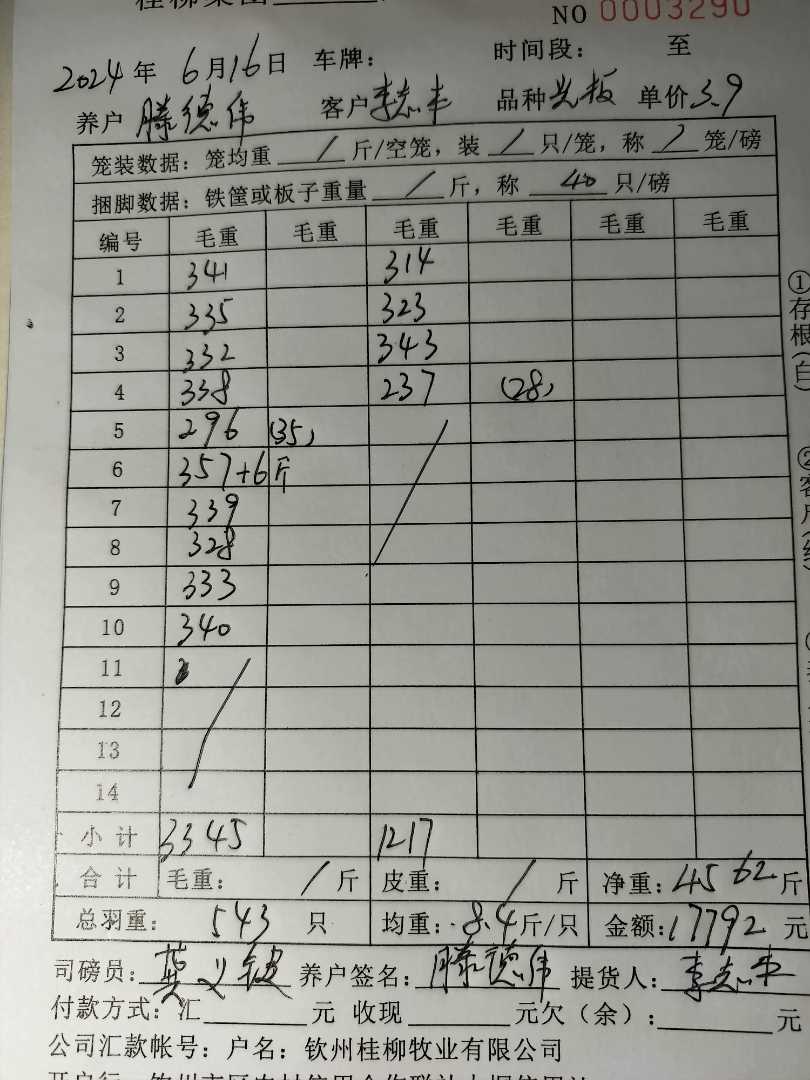 桂柳集团
NO 0003290
2024年 6月16日 车牌： 时间段： 至
养户 滕德伟 客户 李志丰 品种 光板 单价 3.9
笼装数据：笼均重 / 斤/空笼，装 / 只/笼，称 / 笼/磅
捆脚数据：铁筐或板子重量 / 斤，称 40 只/磅
编号 毛重 毛重 毛重 毛重 毛重 毛重
1 341 314
2 335 323
3 332 343
4 338 237 (28)
5 296 (35)
6 357+6斤
7 339
8 328
9 333
10 340
11
12
13
14
小计 3345 1217
合计 毛重： / 斤 皮重： / 斤 净重：4562斤
总羽重： 543 只 均重：8.4斤/只 金额：17792元
司磅员： 养户签名：滕德伟 提货人：李志丰
付款方式：汇 元 收现 元欠（余）： 元
公司汇款帐号：户名：钦州桂柳牧业有限公司
①存根(白)
②客户(红)